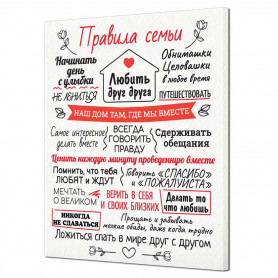 Правила семьи
Начинать
день
с улыбки
Любить
друг друга
Обнимашки
Целовашки
в любое время
НЕ ЛЕНИТЬСЯ
ПУТЕШЕСТВОВАТЬ
НАШ ДОМ ТАМ, ГДЕ МЫ ВМЕСТЕ
Самое интересное
делать вместе
ВСЕГДА
ГОВОРИТЬ
ПРАВДУ
Сдерживать
обещания
Ценить каждую минуту проведенную вместе
Помнить, что тебя
ЛЮБЯТ И ЖДУТ
Говорить «СПАСИБО»
и «ПОЖАЛУЙСТА»
МЕЧТАТЬ
О ВЕЛИКОМ
ВЕРИТЬ В СЕБЯ
И СВОИХ БЛИЗКИХ
Делать то
что любишь
НИКОГДА
НЕ СДАВАТЬСЯ
Прощать и забывать
мелкие обиды, даже когда трудно
Ложиться спать в мире друг с другом